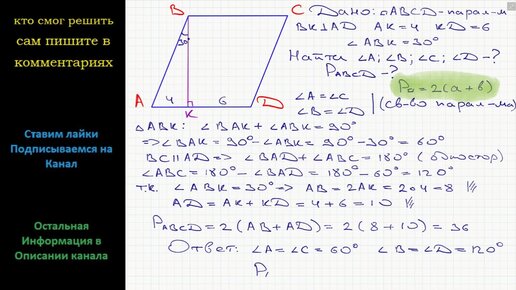 кто смог решить
сам пишите в
комментариях
Ставим лайки
Подписываемся на
Канал
Остальная
Информация в
Описании канала
B
C
30°
A
4
K
6
D
Дано: ▱ABCD-парал-м
BK⊥AD AK=4 KD=6
∠ABK=30°
Найти ∠A; ∠B; ∠C; ∠D-?
P_ABCD-?
P▱=2(a+b)
∠A=∠C
∠B=∠D | (св-во парал-ма)
△ABK: ∠BAK+∠ABK=90°
=>∠BAK=90°-∠ABK=90°-30°=60°
BC||AD=> ∠BAD+∠ABC=180° (одностор)
∠ABC=180°-∠BAD=180°-60°=120°
т.к. ∠ABK=30°=> AB=2AK=2•4=8
AD=AK+KD=4+6=10
P_ABCD=2(AB+AD)=2(8+10)=36
Ответ: ∠A=∠C=60° ∠B=∠D=120°
P